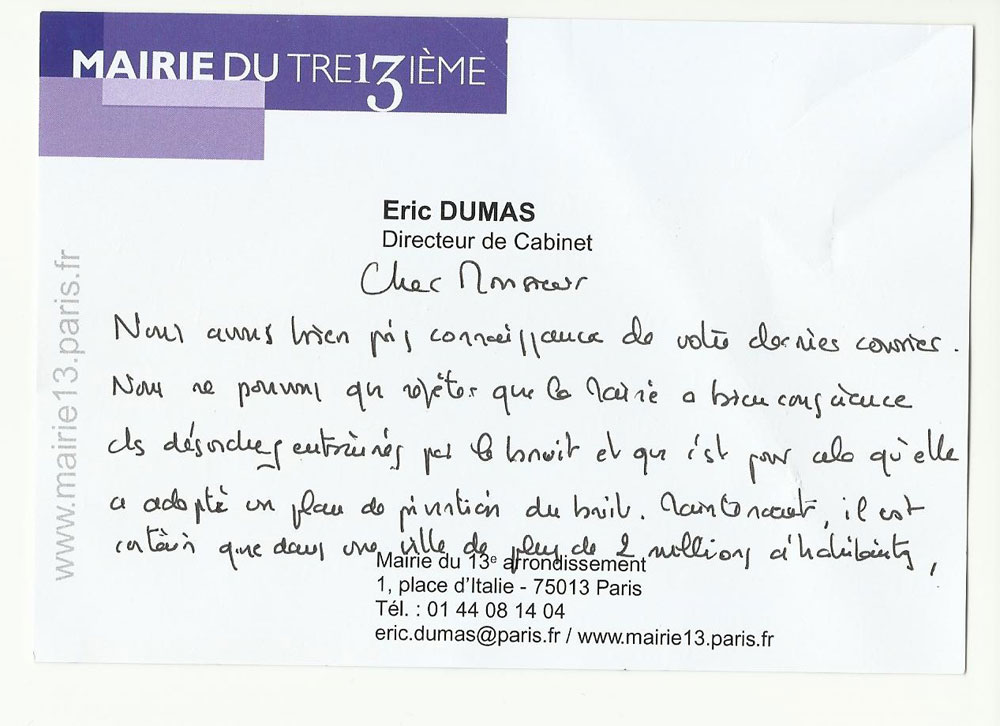 MAIRIE DU TRE13IÈME
www.mairie13.paris.fr
Eric DUMAS
Directeur de Cabinet
Cher Monsieur
Nous avons bien pris connaissance de votre dernier courrier.
Nous ne pouvons que répéter que la Mairie a bien conscience
des désordres entrainés par le bruit et que c'est pour cela qu'elle
a adopté un plan de prévention du bruit. Maintenant, il est
certain que dans une ville de plus de 2 millions d'habitants,
Mairie du 13e arrondissement
1, place d'Italie - 75013 Paris
Tél. : 01 44 08 14 04
eric.dumas@paris.fr / www.mairie13.paris.fr